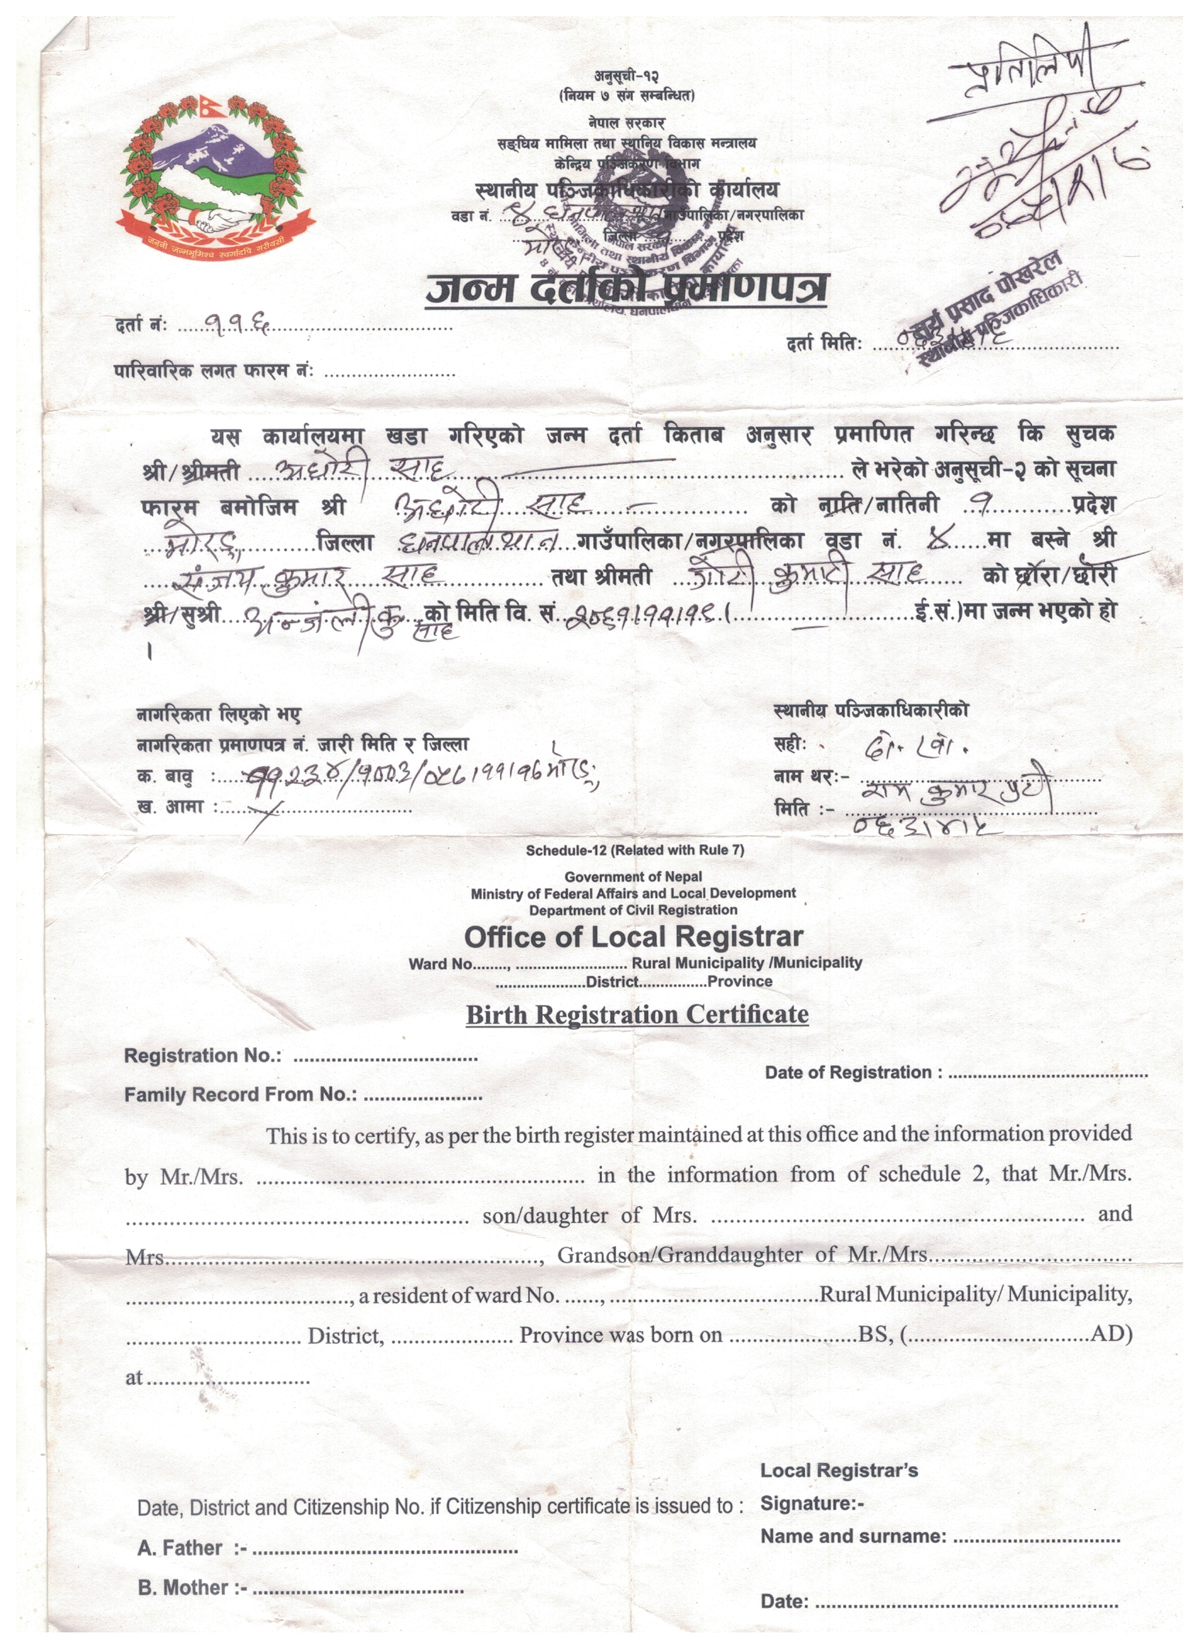 प्रतिलिपी
अनुसूची-१२
(नियम ७ संग सम्बन्धित)
नेपाल सरकार
सङ्घिय मामिला तथा स्थानिय विकास मन्त्रालय
केन्द्रिय पञ्जिकरण विभाग
स्थानीय पञ्जिकाधिकारीको कार्यालय
वडा नं. ४ धनपालथान गाउँपालिका/नगरपालिका
मोरङ जिल्ला १ प्रदेश
जननी जन्मभूमिश्च स्वर्गादपि गरीयसी
जन्म दर्ताको प्रमाणपत्र
सूर्य प्रसाद पोखरेल
स्थानीय पञ्जिकाधिकारी
दर्ता नं: ११६
दर्ता मिति:
पारिवारिक लगत फारम नं:
यस कार्यालयमा खडा गरिएको जन्म दर्ता किताब अनुसार प्रमाणित गरिन्छ कि सुचक
श्री/श्रीमती अघोरी साह ले भरेको अनुसूची-२ को सूचना
फारम बमोजिम श्री अघोरी साह को नाति/नातिनी १ प्रदेश
मोरङ जिल्ला धनपालथान गाउँपालिका/नगरपालिका वडा नं. ४ मा बस्ने श्री
संजय कुमार साह तथा श्रीमती गौरी कुमारी साह को छोरा/छोरी
श्री/सुश्री अन्जली कु साह को मिति वि. सं. २०६१।११।१६ ( ई.सं.)मा जन्म भएको हो
।
नागरिकता लिएको भए
नागरिकता प्रमाणपत्र नं. जारी मिति र जिल्ला
क. बावु : ११२३४/१००३/०५८।११।१६ मोरङ
ख. आमा :
स्थानीय पञ्जिकाधिकारीको
सही:
नाम थर:- राम कुमार
मिति :- ०६३।४।५
Schedule-12 (Related with Rule 7)
Government of Nepal
Ministry of Federal Affairs and Local Development
Department of Civil Registration
Office of Local Registrar
Ward No........, ........................... Rural Municipality /Municipality
......................District.................Province
Birth Registration Certificate
Registration No.: ......................................
Date of Registration : .........................................
Family Record From No.: ........................
This is to certify, as per the birth register maintained at this office and the information provided
by Mr./Mrs. .......................................................... in the information from of schedule 2, that Mr./Mrs.
............................................................. son/daughter of Mrs. .................................................................. and
Mrs.................................................................., Grandson/Granddaughter of Mr./Mrs....................................
........................................, a resident of ward No. ......, .....................................Rural Municipality/ Municipality,
............................... District, ..................... Province was born on .......................BS, (................................AD)
at .............................
Local Registrar's
Date, District and Citizenship No. if Citizenship certificate is issued to :
Signature:-
Name and surname: ...............................
A. Father :- .................................................
B. Mother :- .......................................
Date: .......................................................